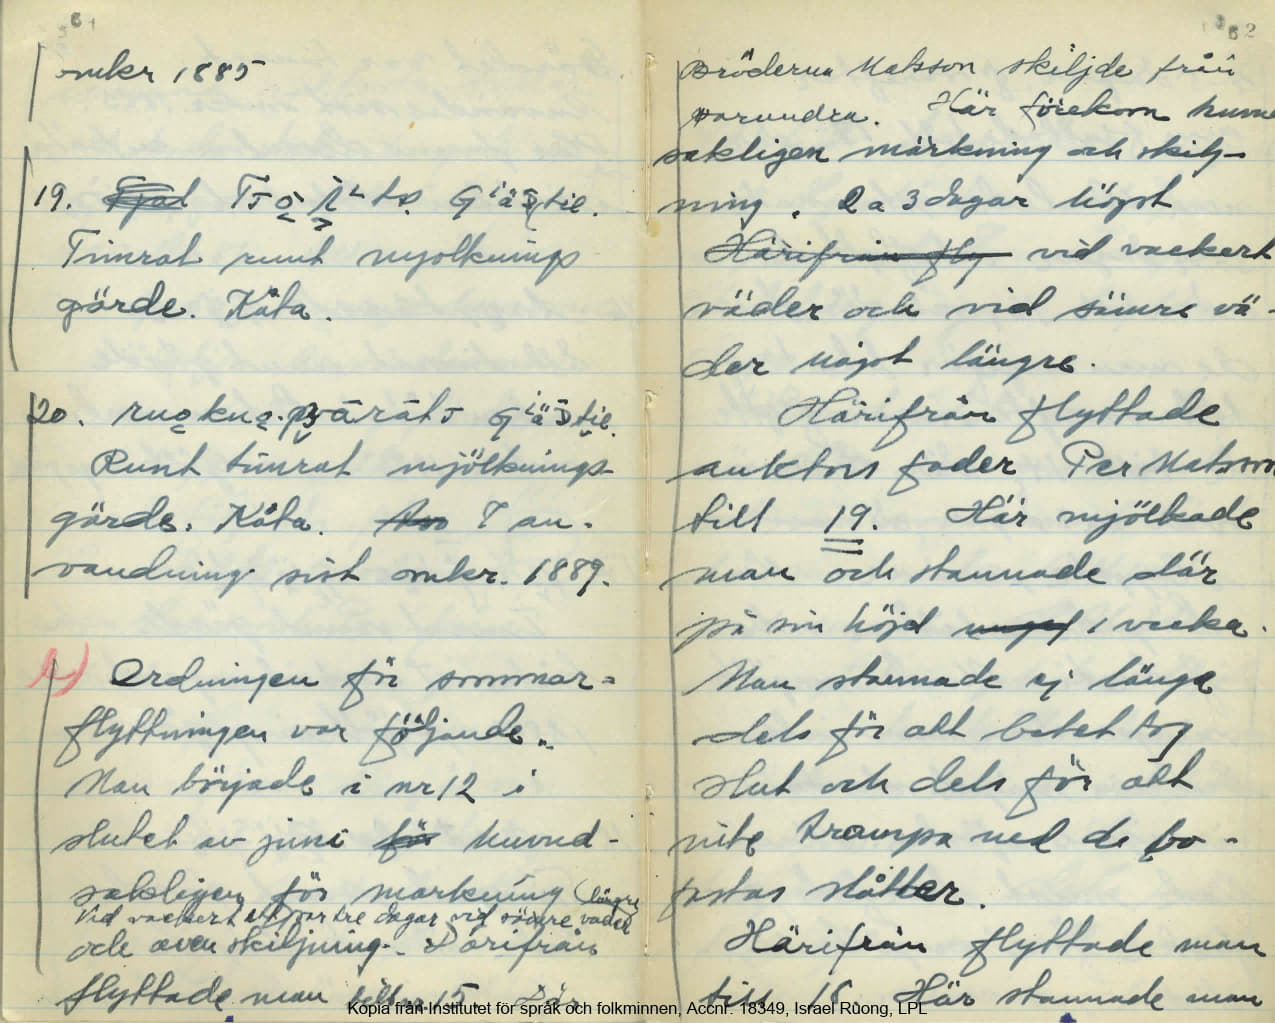 omkr 1885
19.
Timrat runt mjolknings
gärde. Kåta.
20.
Runt timrat mjölknings-
gärde. Kåta. I an-
vändning sist omkr. 1889.
Ordningen för sommar-
flyttningen var följande.
Man började i nr 12 i
slutet av juni huvud-
sakligen för markning (längre
vid vackert ett par tre dagar vid sämre väder
och även skiljning. Därifrån
flyttade man till nr 15. Där
62
Bröderna Matsson skiljde från
varandra. Här förekom huvud
sakligen märkning och skilj-
ning. 2 a 3 dagar högst
Härifrån fly vid vackert
väder och vid sämre vä-
der något längre.
Härifrån flyttade
auktors fader Per Matsson
till 19. Här mjölkade
man och stannade där
på sin höjd 1 vecka.
Man stannade ej länge
dels för att betet tog
slut och dels för att
inte trampa ned de bo-
fastas slåtter.
Härifrån flyttade man
till 18. Här stannade man
Kopia från Institutet för språk och folkminnen, Accnr. 18349, Israel Ruong, LPL